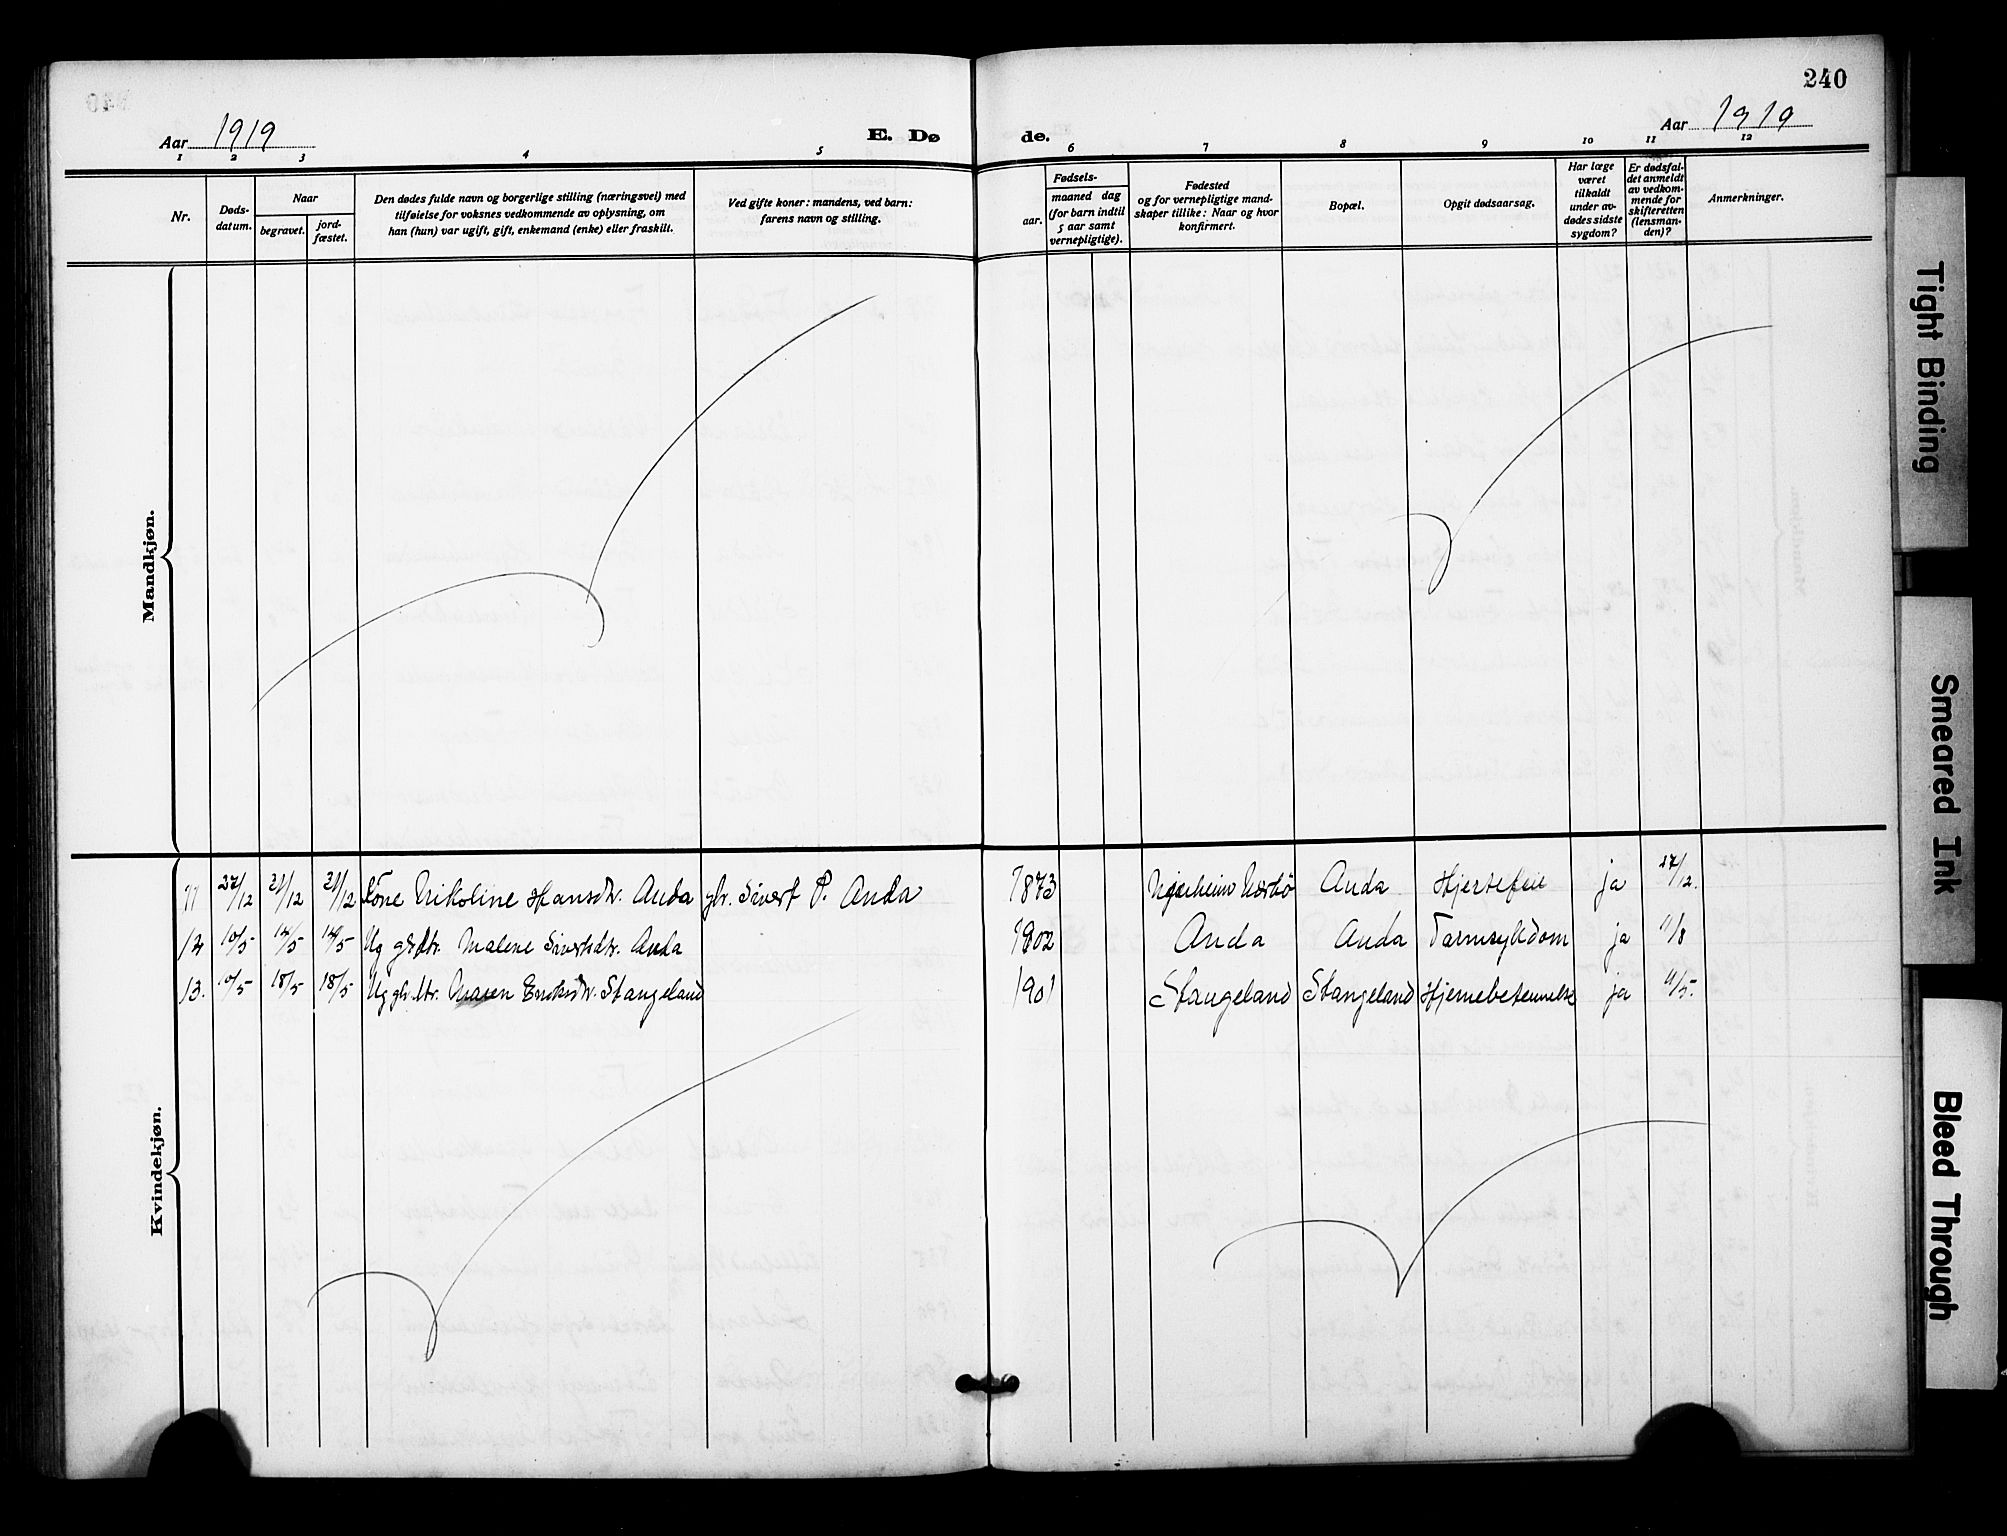 240
Aar 1919
E. Dø
de.
Aar 1919
1 2 3 4 5 6 7 8 9 10 11 12
Nr.
Døds-
datum.
Naar
begravet.
jord-
fæstet.
Den dødes fulde navn og borgerlige stilling (næringsvei) med
tilføielse for voksnes vedkommende av oplysning, om
han (hun) var ugift, gift, enkemand (enke) eller fraskilt.
Ved gifte koner: mandens, ved barn:
farens navn og stilling.
Fødsels-
aar.
maaned dag
(for barn indtil
5 aar samt
vernepligtige).
Fødested
og for vernepligtige mand-
skaper tillike: Naar og hvor
konfirmert.
Bopæl.
Opgit dødsaarsag.
Har læge
været
tilkaldt
under av-
dødes sidste
sygdom?
Er dødsfal-
det anmeldt
av vedkom-
mende for
skifteretten
(lensman-
den)?
Anmerkninger.
Mandkjøn.
Kvindekjøn.
11 27/12 31/12 31/12 Kone Nikoline Hansdtr. Anda gbr. Sivert P. Anda 1873 Njærheim Nærbø Anda Hjertefeil ja 27/12.
12 10/5 14/5 14/5 Ug gbrdtr. Malene Sivertsdtr. Anda 1902 Anda Anda Tarmsykdom ja 11/8
13. 10/5 18/5 18/5 Ug gbr.dtr. Maren Eriksdtr. Stangeland 1901 Stangeland Stangeland Hjernebetennelse ja 11/5.
Tight Binding
Smeared Ink
Bleed Through